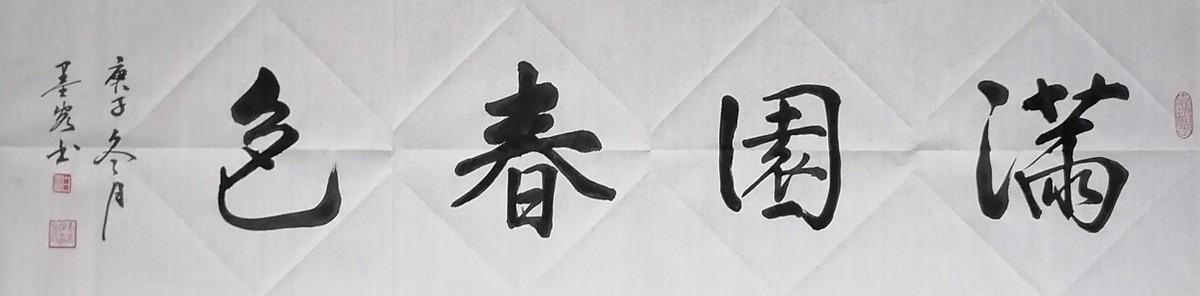 滿園春色
庚子冬月
墨客书